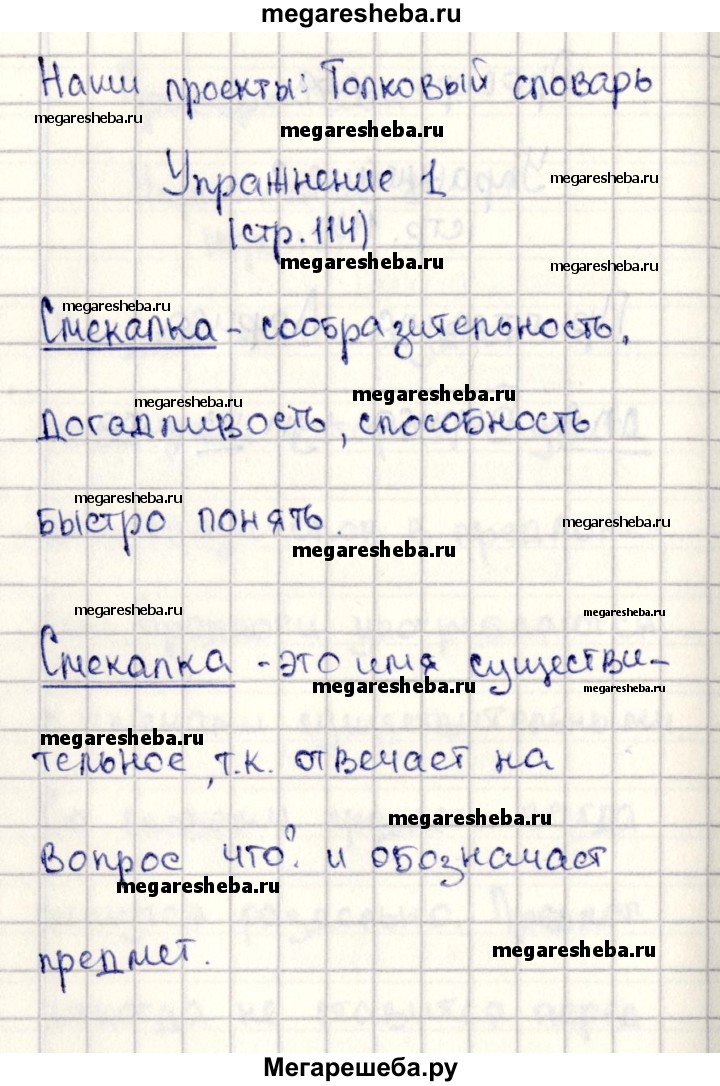 megaresheba.ru
Наши проекты: Толковый словарь
megaresheba.ru
megaresheba.ru
Упражнение 1
megaresheba.ru
(стр. 114)
megaresheba.ru
megaresheba.ru
megaresheba.ru
Смекалка - сообразительность,
megaresheba.ru
megaresheba.ru
догадливость, способность
megaresheba.ru
быстро понять.
megaresheba.ru
megaresheba.ru
megaresheba.ru
megaresheba.ru
Смекалка - это имя существи-
megaresheba.ru
megaresheba.ru
megaresheba.ru
тельное, т.к. отвечает на
megaresheba.ru
вопрос что? и обозначает
megaresheba.ru
предмет.
megaresheba.ru
Мегарешеба.ру